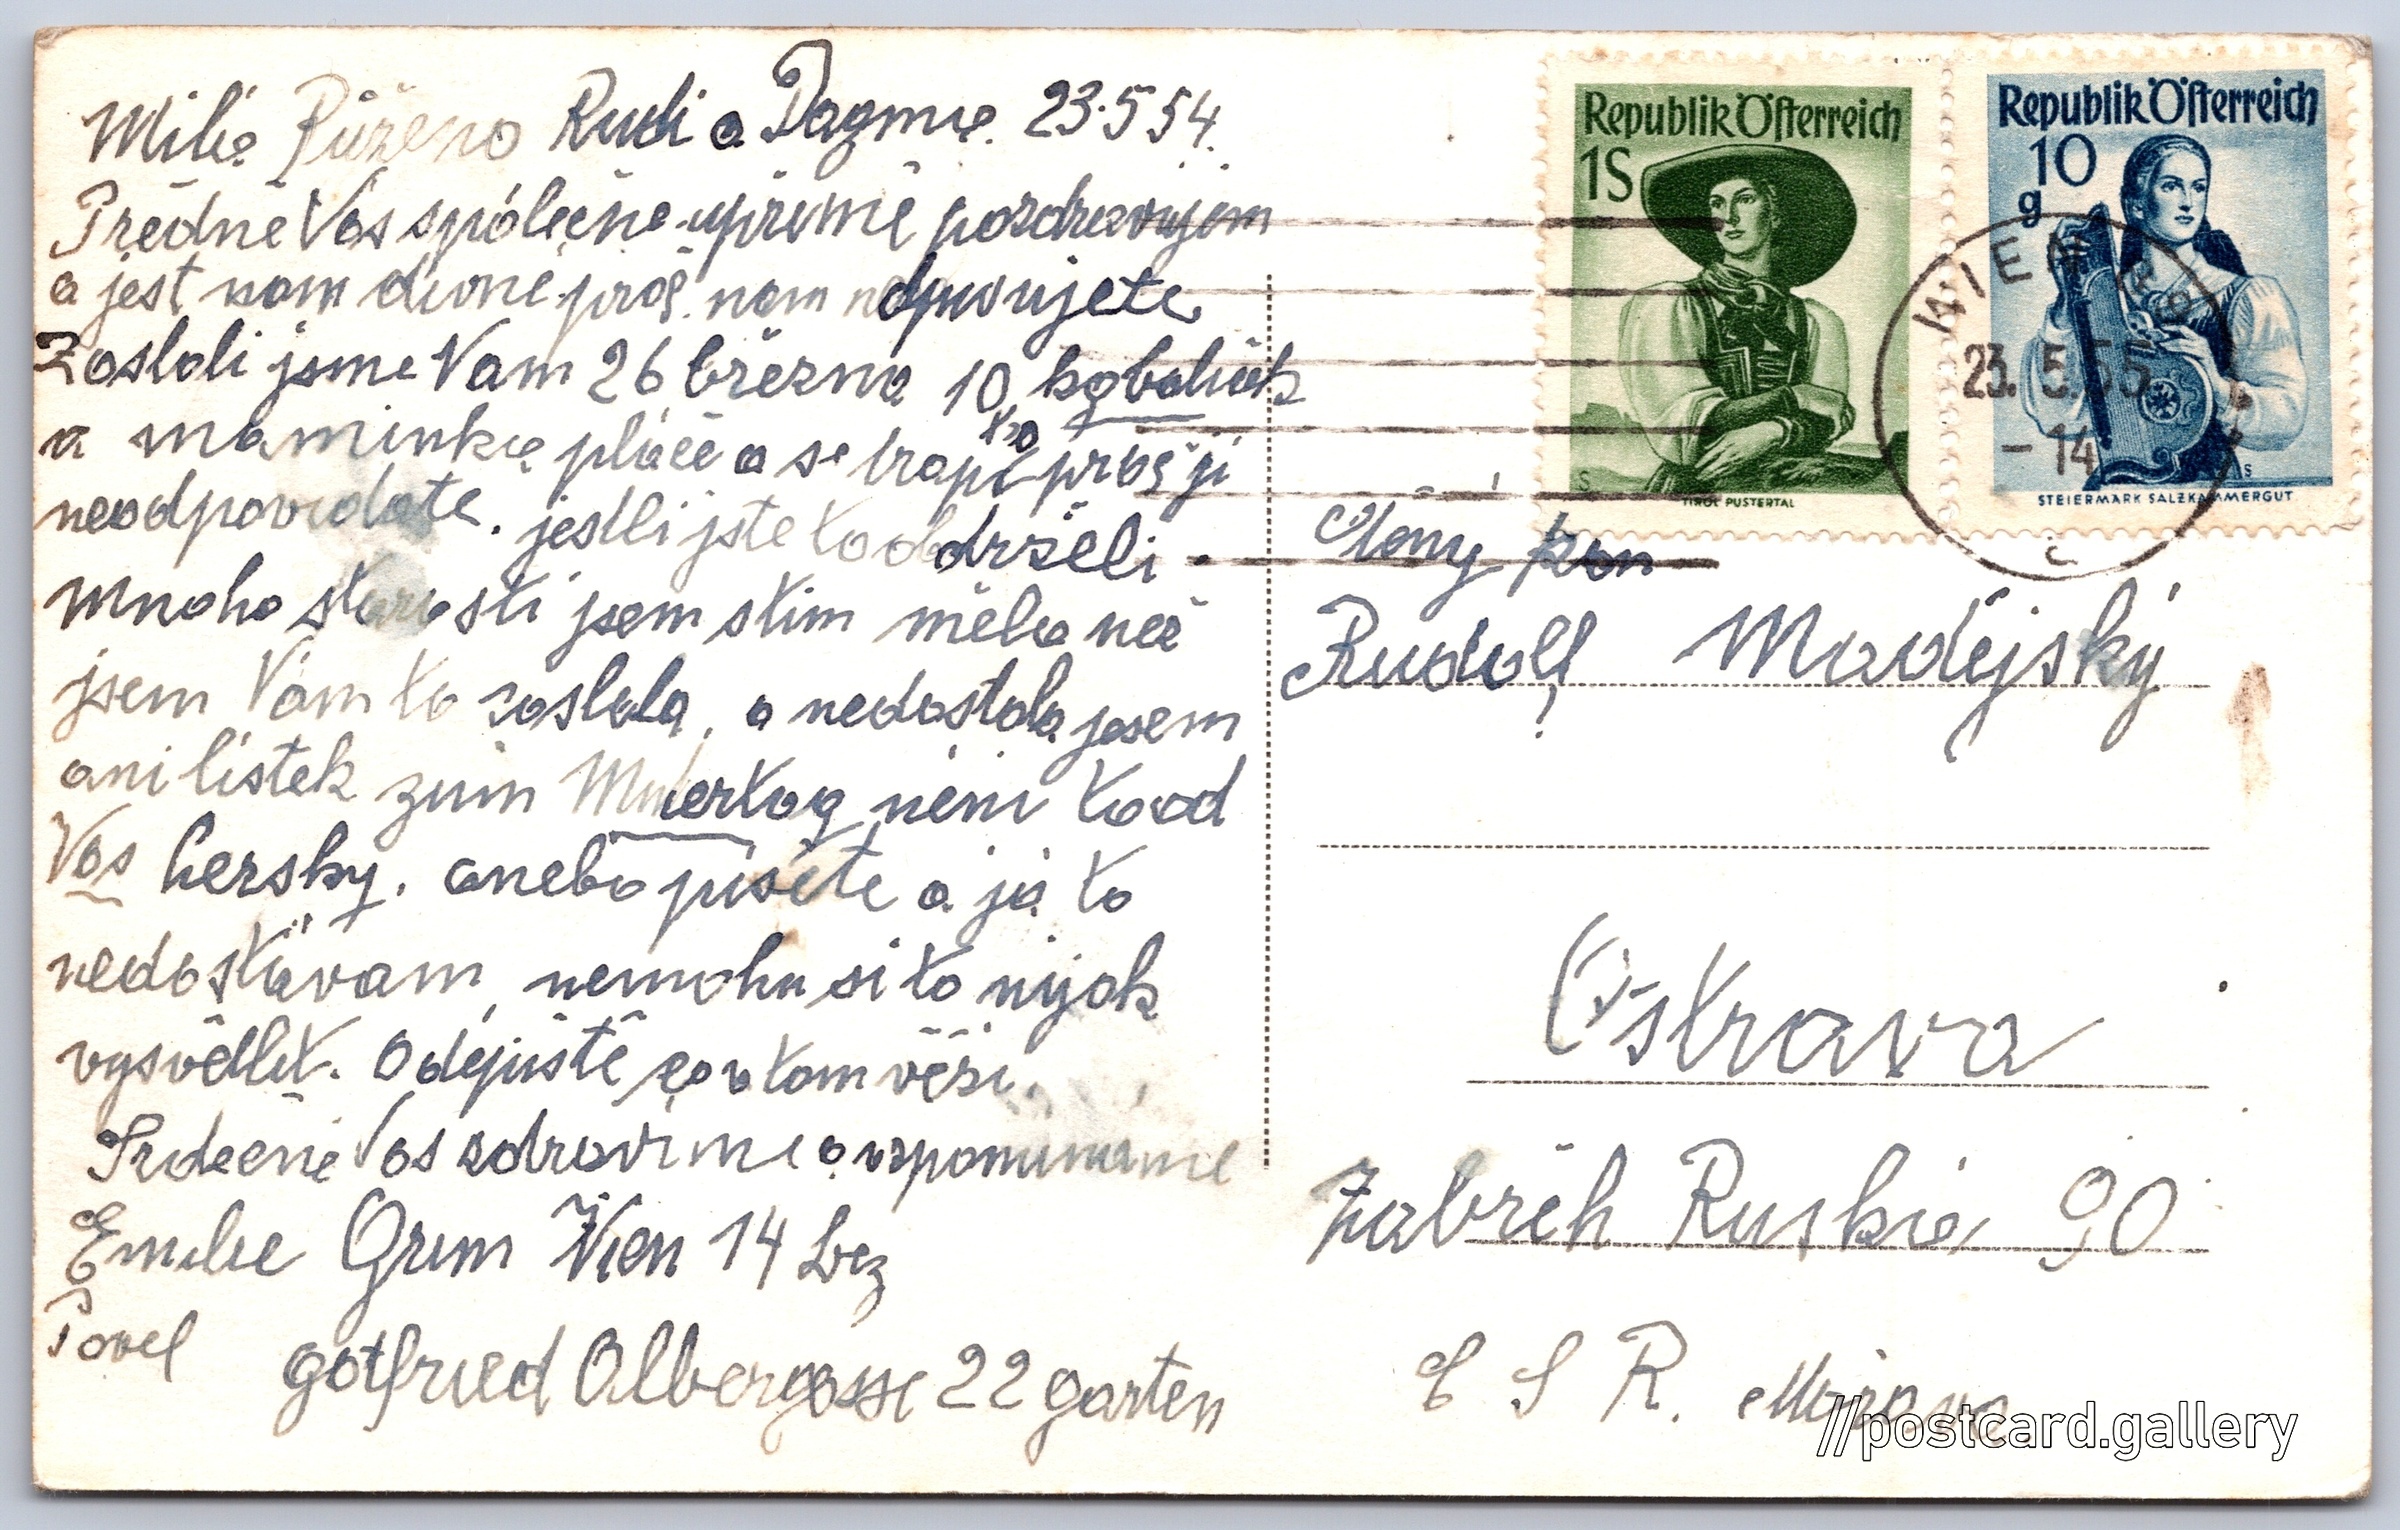 Milá Růženo Rudi a Dagmar. 23.5 54.
Předně Vás společně upřímě pozdravujem
a jest nam divné proč nam
Zaslali jsme Vam 26 března 10 kobaliček
a maminka pláče a se trapi proč ji
to
neodpovidate. jestli jste to obdrželi.
Mnoho starosti jsem stim měla než
jsem Vám to zaslala, a nedostala jsem
ani listek zum Muttertag neni to od
Vás hersky. anebo pišete a já to
nedostávam, nemohu si to nijak
vysvětlit.
Srdečně Vas zdravime a vzpominame
Emilie Grim Wien 14 bez
Pavel
gotfried Albergasse 22 garten
Republik Österreich
1S
TIROL PUSTERTAL
Republik Österreich
10
g
STEIERMARK SALZKAMMERGUT
WIEN
23. 5. 55
- 14
Ctěný pan
Rudolf Madějský
Ostrava
Zabřeh Ruska 90
Č S R. Morava
//postcard.gallery